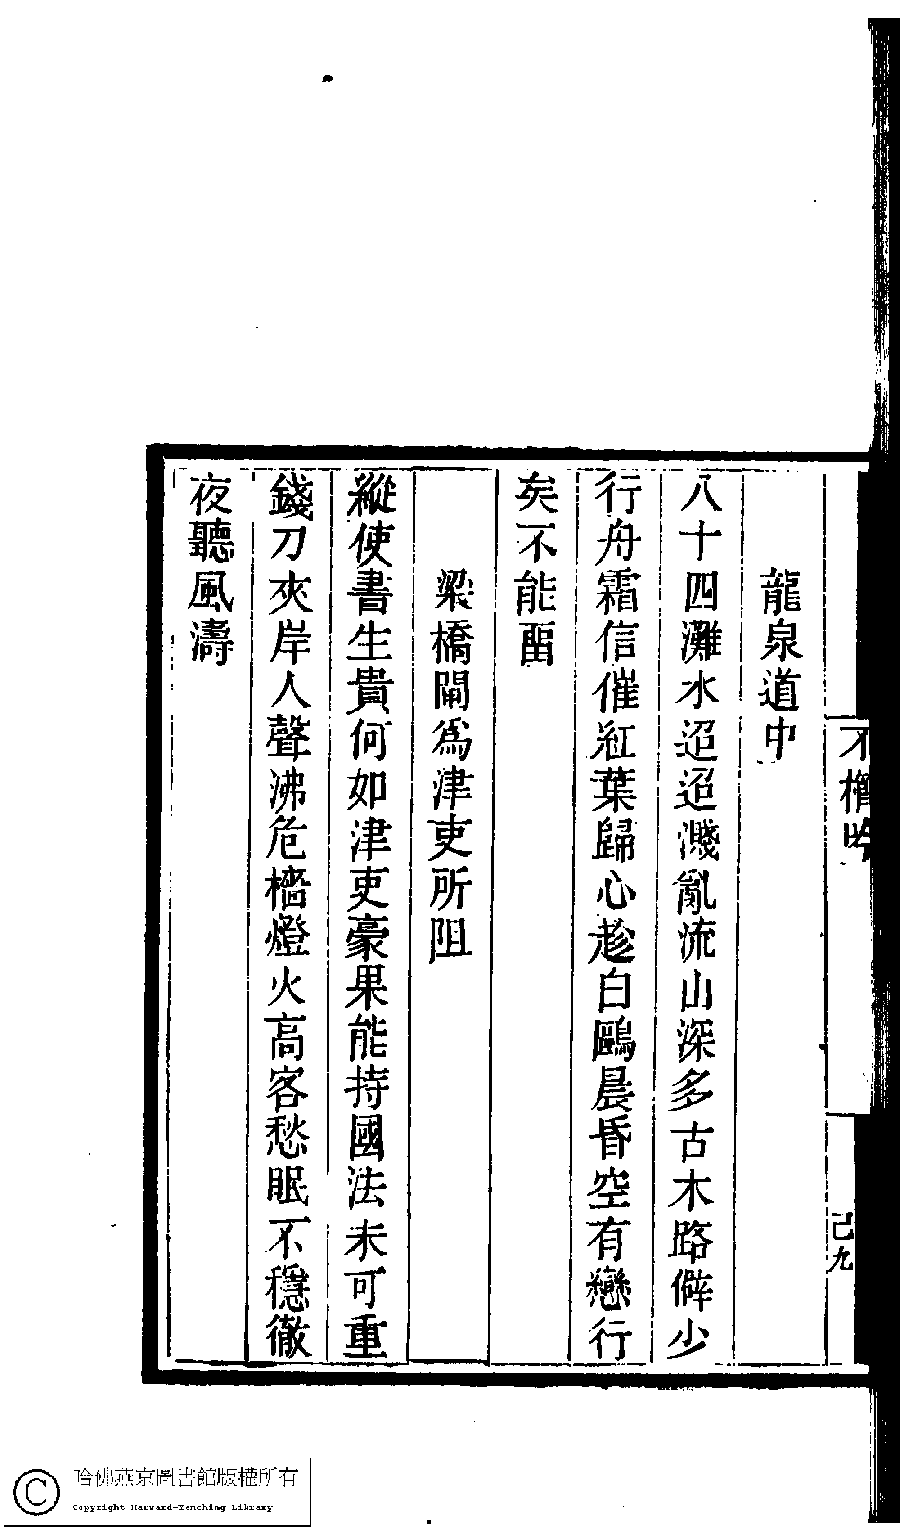 不櫛吟
己九
龍泉道中
八十四灘水迢迢濺亂流山深多古木路僻少
行舟霜信催紅葉歸心趁白鷗晨昏空有戀行
矣不能畱
梁橋閘爲津吏所阻
縱使書生貴何如津吏豪果能持國法未可重
錢刀夾岸人聲沸危檣燈火高客愁眠不穩徹
夜聽風濤
© 哈佛燕京圖書館版權所有
Copyright Harvard-Yenching Library